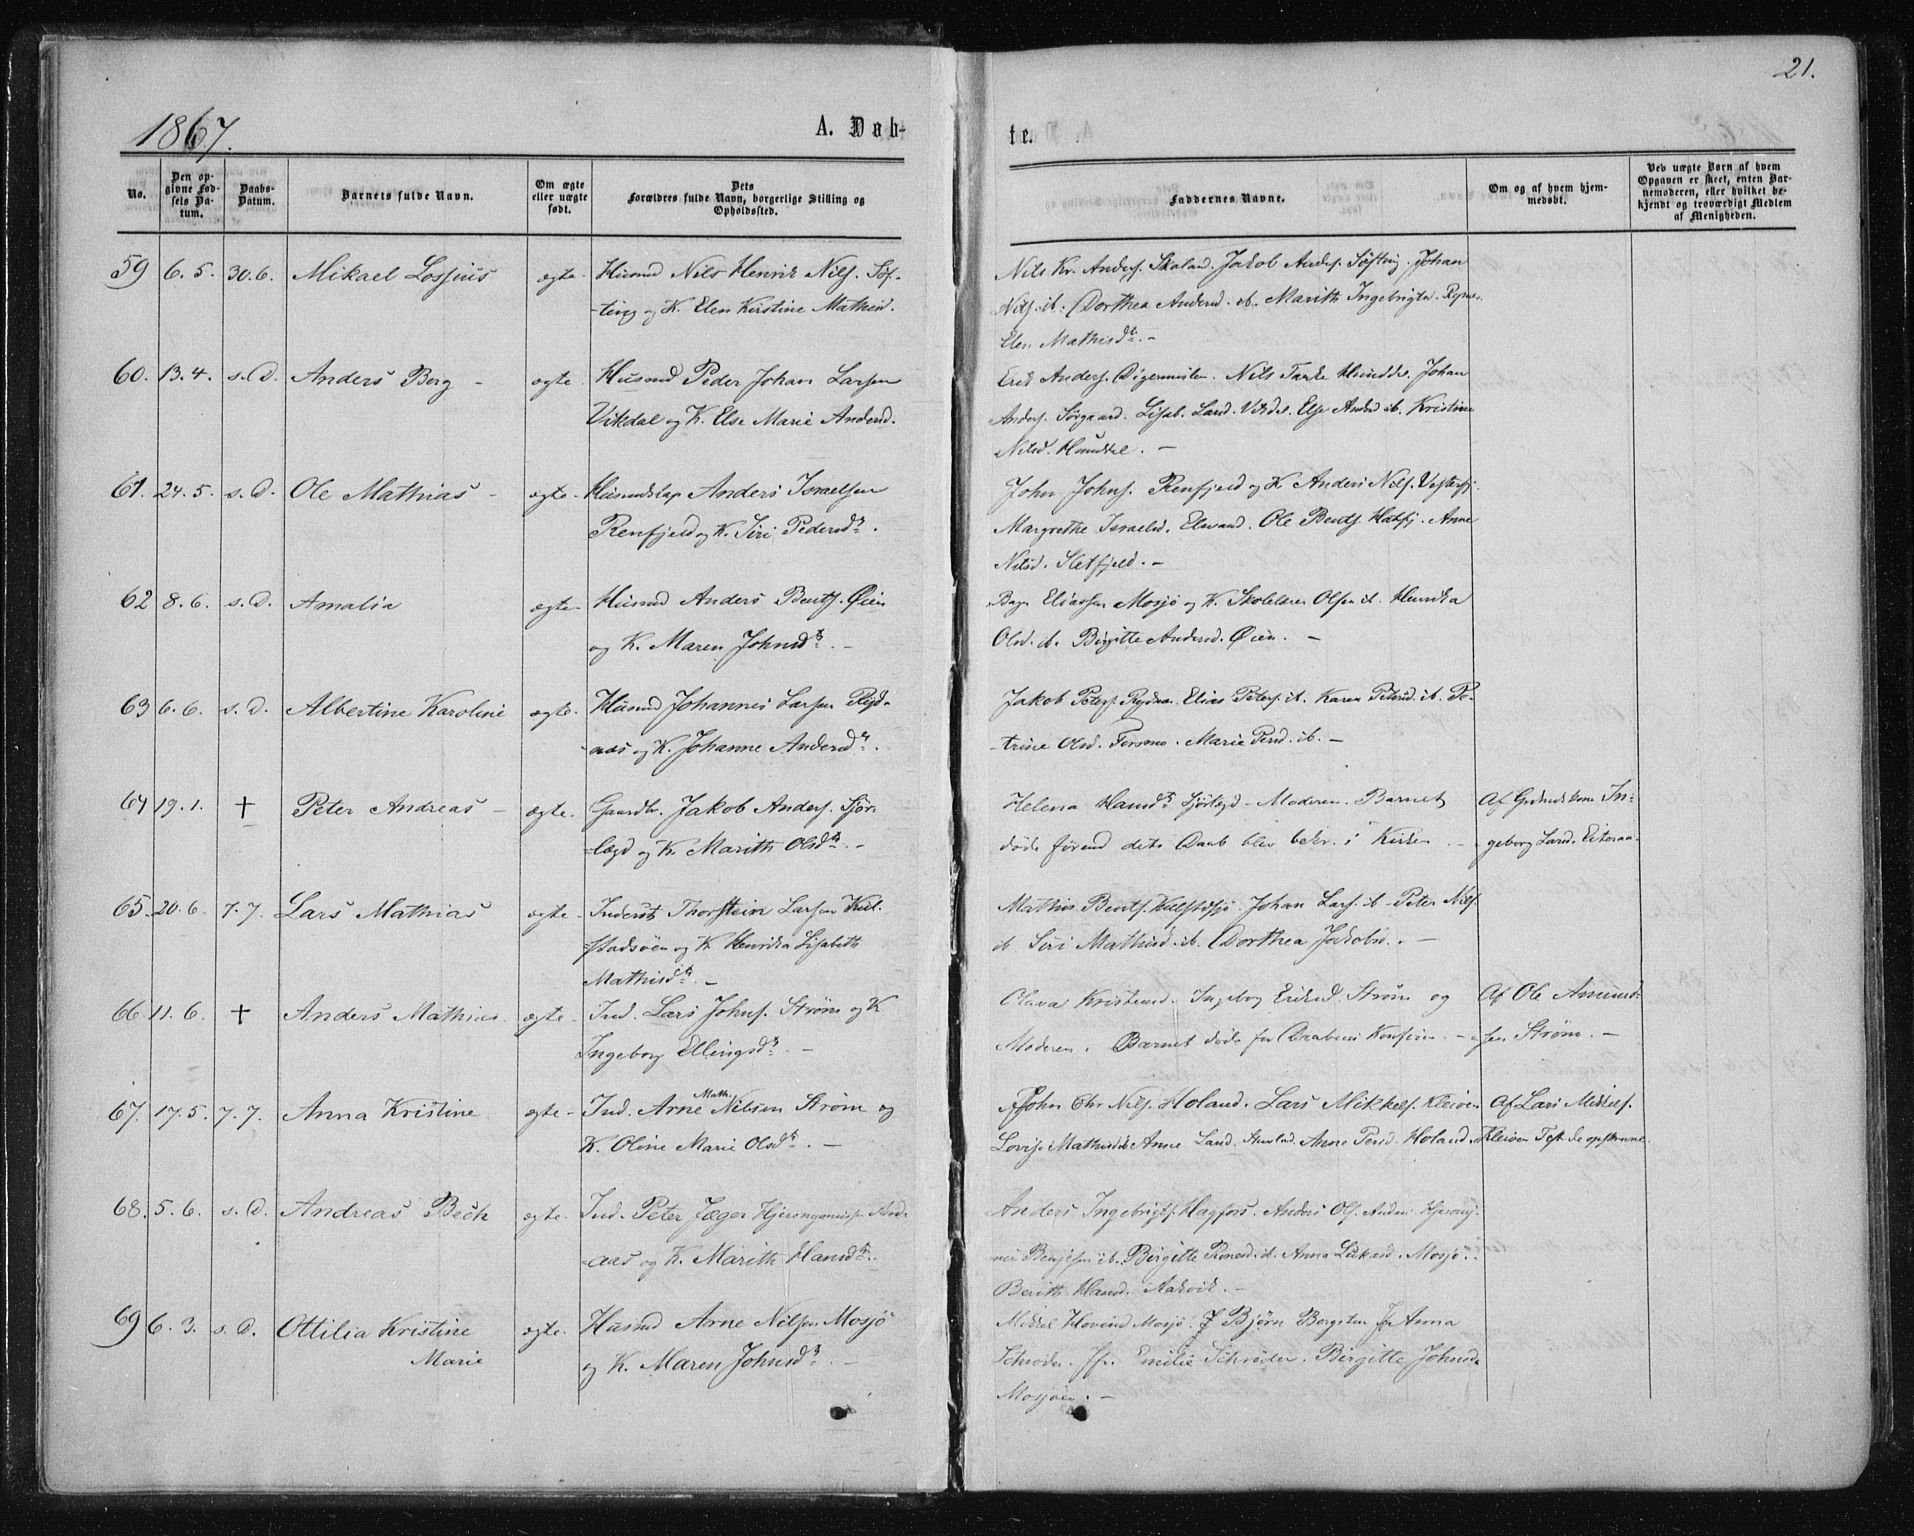 21.
1867.
A. Døb-
te.
No.
Den op-
givne Fød-
sels Da-
tum.
Daabs-
Datum.
Barnets fulde Navn.
Om ægte
eller uægte
født.
Dets
Forældres fulde Navn, borgerlige Stilling og
Opholdssted.
Faddernes Navne.
Om og af hvem hjem-
medøbt.
Ved uægte Børn af hvem
Opgaven er skeet, enten Bar-
nemoderen, eller hvilket be-
kjendt og troværdigt Medlem
af Menigheden.
59 6. 5. 30. 6. Mikael Losjius ægte. Husmd Nils Henrik Nils. Søf-
-ting og K. Elen Kirstine Mathisd.
Nils Kr. Anders. Skaland. Jakob Anders. Søfting. Johan
Nils. ib. Dorthea Andersd. ib. Marith Ingebrigtsd.
Elen Mathisdtr. -
60. 13. 4. s. D. Anders Berg - ægte. Husmd Peder Johan Larsen
Vikdal og K. Else Marie Andersd.
Erik Anders. Nils Johan
Anders. Sørgaard. Lisab. Larsd. Else Andersd ib. Kristine
Nilsd.
61. 24. 5. s. D. Ole Mathias - ægte. Anders Israelsen
Renfjeld og K. Siri Pedersdtr.
John Johns. Renfjeld og K Anders Nils.
Margrethe Israelsd. Ole Bents. Hatfj. Anne
Nilsd. Sletfjeld. -
62 8. 6. s. D. Amalia ægte. Husmd Anders Bents. Øien
og K. Maren Johnsdtr. -
Eliassen Mosjø og K. Skolelærer Olsen ib. Henrika
Olsd. ib. Birgitte Andersd. Øien. -
63 6. 6. s. D. Albertine Karoline ægte. Husmd Johannes Larsen Ryd-
-aas og K. Johanne Andersdtr.
Jakob Peters. Rydaas. Elias Peters. ib. Karen Petersd. ib. Pe-
-trine Olsd. Forsmo. Marie Persd. ib. -
64 19. 1. † Peter Andreas - ægte. Gaardbr. Jakob Anders. Sjør-
-lægd og K. Marith Olsdtr. -
Helena Hansdtr. - Moderen. Barnet
døde førend dets Daab blev bekr. i Kirken. -
Af In-
geborg Larsd.
65. 20. 6. 7. 7. Lars Mathias ægte. Inderst Thorstein Larsen Kul-
-stadsøen og K. Henrika Lisabeth
Mathisdtr. -
Mathias Bents. Kulstadsjø. Johan Lars. ib - Peter Nils.
ib Siri Mathisd. ib. Dorthea Jakobsd. -
66. 11. 6. † Anders Mathias. ægte. Ind. Lars Johns. Strøm og K
Ingeborg Ellingsdtr. -
Olava Kristensd. Ingeborg Eriksd. Strøm og
Moderen. Barnet døde før Daabens -
Af Ole Amund-
sen Strøm. -
67. 17. 5. 7. 7. Anna Kristine ægte. Ind. Arne Math. Nilsen Strøm og
K. Oline Marie Olsdtr. -
John Chr Nils. Holand. Lars Mikkels. Kleiven
Lovise Mathisd ib Anne Larsd. Anne Persd. Holand.
Af Lars Mikkels.
Kleiven
68. 5. 6. s. D. Andreas Bech ægte. Ind. Peter Jæger
-aas og K. Marith Hansdtr.
Anders Ingebrigts. Hagfors. Anders Ols.
ib. Birgitte ib. Anna Lukasd. Mosjø.
Berith Hansd. Aakvik. -
69 6. 3. s. D. Ottilia Kristine
Marie ægte. Husmd Arne Nilsen Mosjø
og K. Maren Johnsdtr. -
Mikkel Hovind Mosjø. Bjørn Fr Anna
Schrøder. Fr. Emilie Schrøder. Birgitte Johnsd.
Mosjøen. -